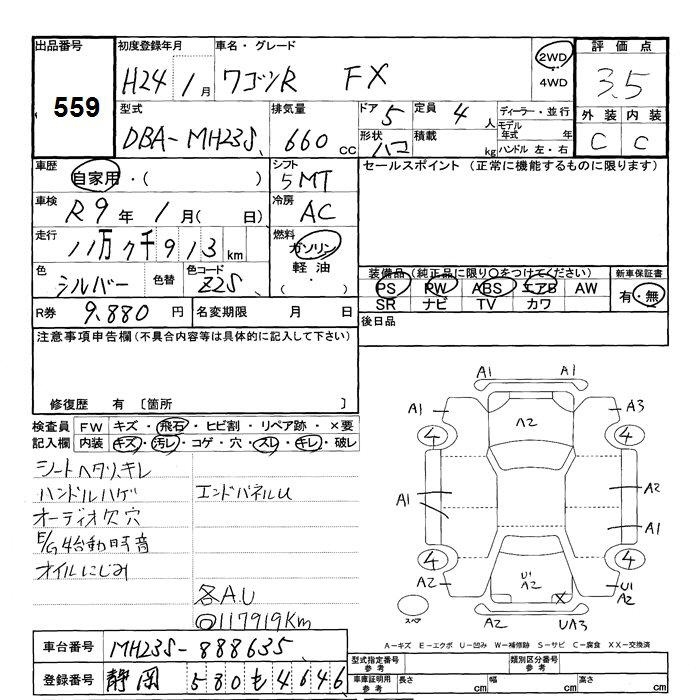 出品番号 初度登録年月 車名・グレード 2WD 4WD 評価点
559 H24 1月 ワゴンR FX 3.5
型式 排気量 ドア 5 定員 4人 ディーラー・並行 外装 内装
DBA-MH23S 660cc 形状 ハコ 積載 kg モデル年式 年 C C
ハンドル 左・右
車歴 自家用・( ) シフト 5MT セールスポイント (正常に機能するものに限ります)
車検 R9年 1月( 日) 冷房 AC
走行 11万7千913km 燃料 ガソリン
軽油
( ・ )
色 シルバー 色替 色コード Z2S
装備品(純正品に限り○をつけてください) 新車保証書
PS PW ABS エアB AW 有・無
SR ナビ TV カワ
R券 9,880円 名変期限 月 日 後日品
注意事項申告欄(不具合内容等は具体的に記入して下さい)
修復歴 有 〔箇所 〕
検査員 FW キズ・飛石・ヒビ割・リペア跡・×要
記入欄 内装 キズ・汚レ・コゲ・穴・スレ・キレ・破レ
シートヘタリ、キレ
ハンドルハゲ エンドパネルU
オーディオ欠 穴
E/G始動時音
オイルにじみ
各A.U
◎117919Km
A1 A1
A1 A2 A3
4 4
A1 A2
A1
4 4
A2 U1 A2 X U1 A2
スペア A2 UA3
A-キズ E-エクボ U-凹み W-補修跡 S-サビ C-腐食 XX-交換済
車台番号 MH23S-888635
型式指定番号 参考 類別区分番号 参考
登録番号 静岡 580 も 4646
車庫証明用 参考 長さ cm 幅 cm 高さ cm